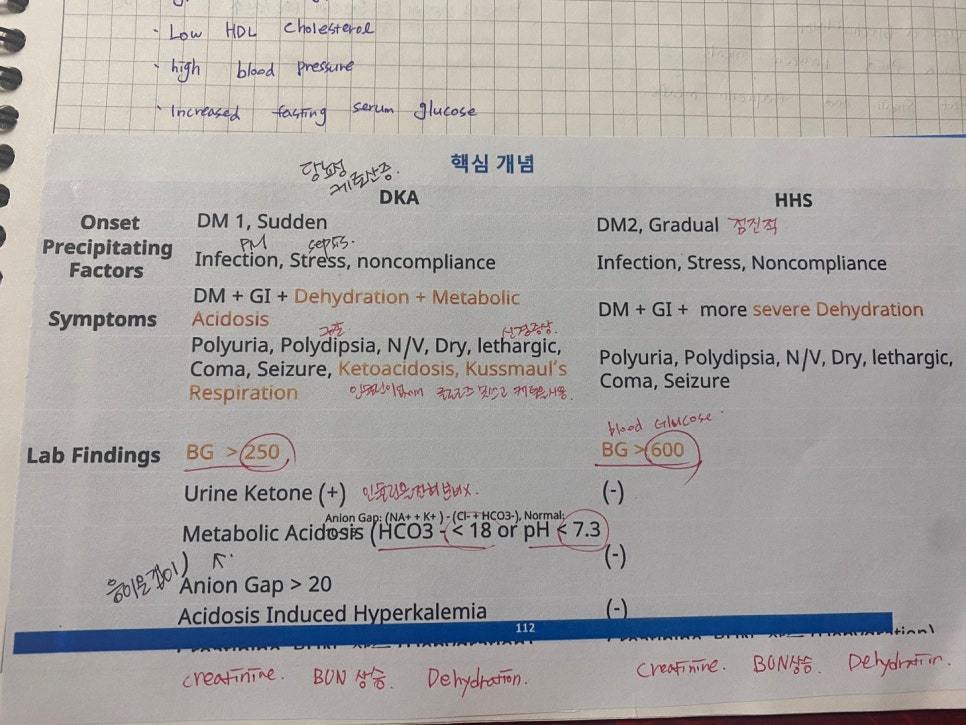 · Low HDL cholesterol
· high blood pressure
· Increased fasting serum glucose
핵심 개념
당뇨성
케토산증.
DKA
HHS
Onset
DM 1, Sudden
DM2, Gradual 점진적
Precipitating
Factors
PM sepsis.
Infection, Stress, noncompliance
Infection, Stress, Noncompliance
Symptoms
DM + GI + Dehydration + Metabolic
Acidosis
DM + GI + more severe Dehydration
신경증상.
Polyuria, Polydipsia, N/V, Dry, lethargic,
Coma, Seizure, Ketoacidosis, Kussmaul's
Respiration
Polyuria, Polydipsia, N/V, Dry, lethargic,
Coma, Seizure
Lab Findings
BG > 250
blood Glucose
BG > 600
Urine Ketone (+)
(-)
Anion Gap: (NA+ + K+ ) - (Cl- + HCO3-), Normal:
Metabolic Acidosis (HCO3 - < 18 or pH < 7.3
)
(-)
음이온 갭이
Anion Gap > 20
Acidosis Induced Hyperkalemia
(-)
112
creatinine. BUN 상승. Dehydration.
Creatinine. BUN 상승. Dehydration.